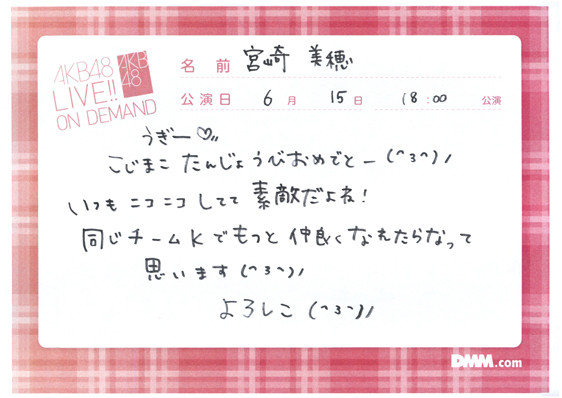 AKB48
LIVE!!
ON DEMAND
AKB
48
名 前 宮崎 美穂
公演日 6月 15日 18:00 公演
うぎー♡〃
こじまこ たんじょうびおめでとー(^3^)ノ
いつも ニコニコしてて 素敵だよね!
同じチームKでもっと仲良くなれたらなって
思います(^3^)ノ
よろしこ(^3^)ノ
DMM.com